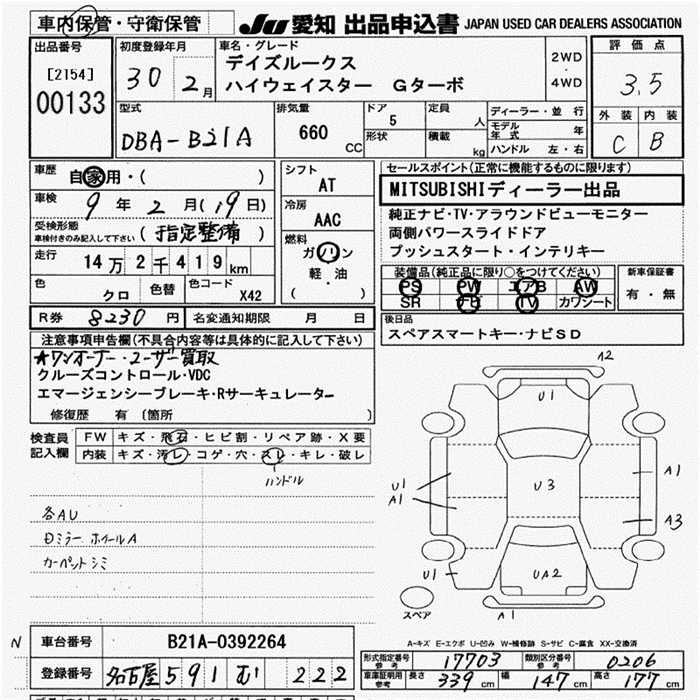 車内保管・守衛保管
JU 愛知 出品申込書 JAPAN USED CAR DEALERS ASSOCIATION
出品番号
[2154]
00133
初度登録年月
30 2月
車名・グレード
デイズルークス
ハイウェイスター Gターボ
2WD
・
4WD
評価点
3.5
外装 内装
C B
型式
DBA-B21A
排気量
660 CC
ドア
5
形状
定員 人
積載 kg
ディーラー・並行
モデル年式 年
ハンドル 左・右
車歴
自家用・( )
車検
9年 2月(19日)
受検形態
車検付きのみ記入して下さい
(指定整備)
走行
14万2千419km
色
クロ
色替
色コード
X42
シフト
AT
冷房
AAC
燃料
ガソリン
軽・油
( )
セールスポイント(正常に機能するものに限ります)
MITSUBISHIディーラー出品
純正ナビ・TV・アラウンドビューモニター
両側パワースライドドア
プッシュスタート・インテリキー
装備品(純正品に限り○をつけてください)
PS PW エアB AW
SR TV カワシート
新車保証書
有・無
後日品
スペアスマートキー・ナビSD
R券 8230円 名変通知期限 月 日
注意事項申告欄(不具合内容等は具体的に記入して下さい)
★ワンオーナー・ユーザー買取
クルーズコントロール・VDC
エマージェンシーブレーキ・Rサーキュレーター
修復歴 有 〔箇所 〕
検査員
記入欄
FW キズ・飛石・ヒビ割・リペア跡・X要
内装 キズ・汚レ・コゲ・穴・スレ・キレ・破レ
ハンドル
各AU
ホイールA
カーペットシミ
A2
U1
U1
A1
U3
A1
A3
U1
UA2
A1
スペア
A-キズ E-エクボ U-凹み W-補修跡 S-サビ C-腐食 XX-交換済
N
車台番号 B21A-0392264
登録番号 名古屋 591 む 222
形式指定番号
参考
17703
類別区分番号
参考
0206
車庫証明用
参考
長さ 339cm 幅 147cm 高さ 177cm